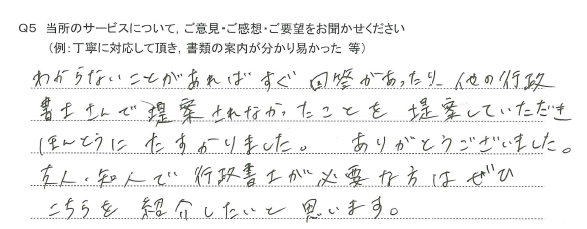 Q5 当所のサービスについて，ご意見・ご感想・ご要望をお聞かせください
（例：丁寧に対応して頂き，書類の案内が分かり易かった 等）
わからないことがあればすぐ 回答があったり、他の行政
書士さんで提案されなかったことを 提案していただき
ほんとうに たすかりました。 ありがとうございました。
友人・知人で 行政書士が必要な方は ぜひ
こちらを 紹介したいと 思います。